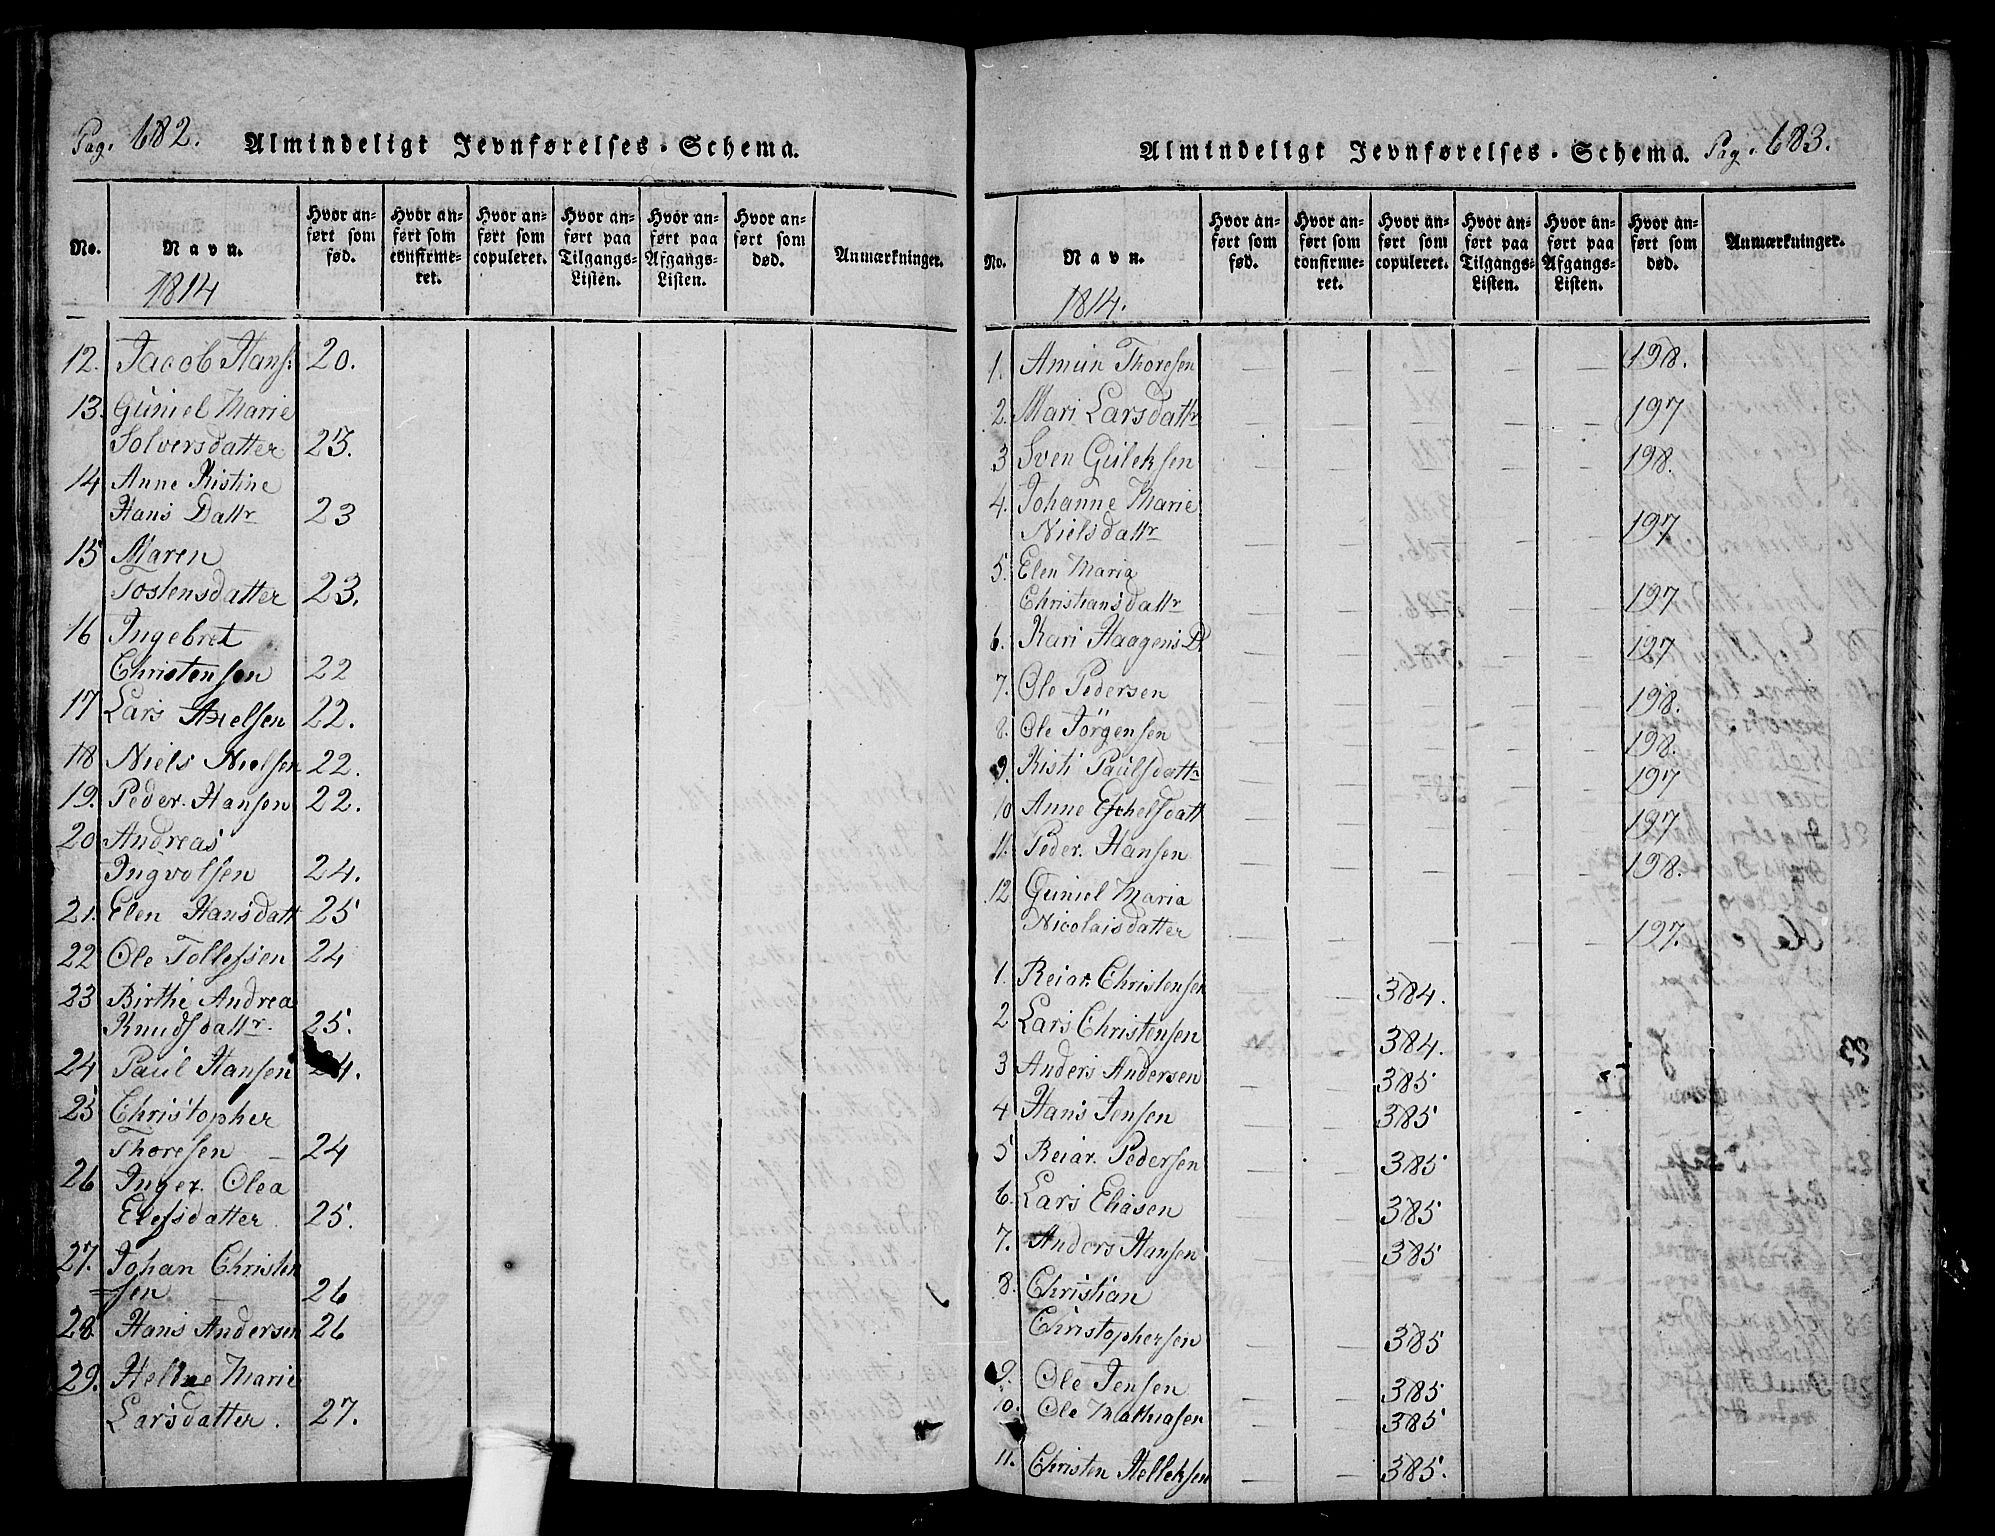 Pag. 682.
Almindeligt Jevnførelses-Schema.
No.
Navn.
1814
Hvor anført som fød.
Hvor anført som confirmeret.
Hvor anført som copuleret.
Hvor anført paa Tilgangs-Listen.
Hvor anført paa Afgangs-Listen.
Hvor anført som død.
Anmærkninger.
12. Jacob Hans: 20.
13. Guniel Marie
Solversdatter 23.
14 Anne Kistine
Hans Dattr 23
15 Maren
Tostensdatter 23.
16 Ingebret
Christensen 22
17 Lars Axelsen 22.
18 Niels Nielsen 22.
19. Peder Hansen 22.
20 Andreas
Ingvolsen 24.
21. Elen Hansdatt 25
22 Ole Tollefsen 24
23 Birthe Andrea
Knudsdattr. 25.
24 Paul Hansen 24.
25 Christopher
Thoresen 24
26 Inger Olea
Elefsdatter 25.
27. Johan Christen
sen 26
28. Hans Andersen 26
29. Helene Marie
Larsdatter. 27.
Almindeligt Jevnførelses-Schema. Pag. 683.
No.
Navn.
1814.
Hvor anført som fød.
Hvor anført som confirmeret.
Hvor anført som copuleret.
Hvor anført paa Tilgangs-Listen.
Hvor anført paa Afgangs-Listen.
Hvor anført som død.
Anmærkninger.
1. Amun Thoresen 198.
2. Mari Larsdattr 197
3 Sven Guleksen 198.
4. Johanne Marie
Nielsdattr 197
5. Elen Maria
Christiansdattr 197
6. Kari Haagens D 197
7. Ole Pedersen 198.
8. Ole Jörgensen 198.
9. Kisti Paulsdattr 197
10 Anne Eskelsdatt 197
11. Peder Hansen 198.
12 Guniel Maria
Nicolaisdatter 197.
1. Reiar Christensen 384.
2 Lars Christensen 384.
3 Anders Andersen 385
4 Hans Jensen 385
5 Reiar Pedersen 385
6. Lars Eliasen 385
7. Anders Hansen 385
8. Christian
Christophersen 385
9. Ole Jensen 385
10. Ole Mathiasen 385
11. Christen Helleksen 385.